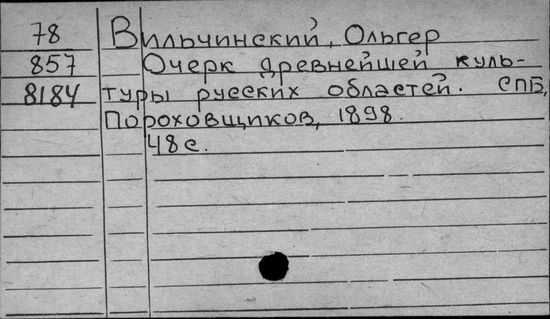 78 Вильчинский, Ольгер
857 Очерк древнейшей куль-
8184 туры русских областей. СПБ,
Пороховщиков, 1898.
48с.